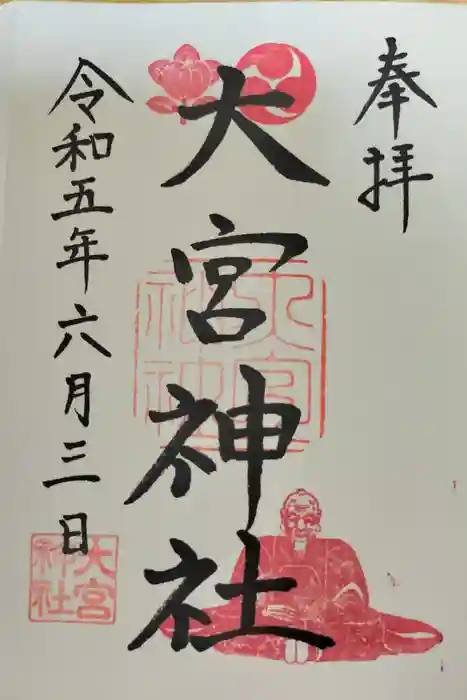 奉拝
大宮神社
大宮神社
令和五年六月三日
大宮
神社